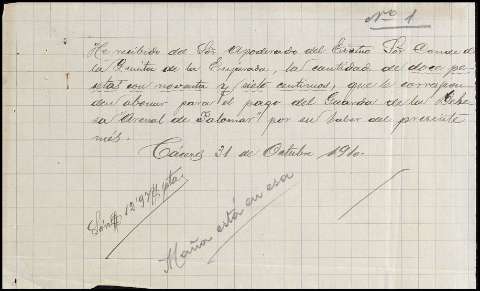 Nº 1
He recibido del Sor Apoderado del Excmo Sor Conde de
la Quinta de la Enjarada, la cantidad de doce pe-
setas con noventa y siete centimos, que le correspon-
den abonar para el pago del Guarda de la Dehe-
sa "Arenal de Palomar" por su haber del presente
més.
Cáceres 31 de Octubre 1910
Són # 12'97 # ptas
Maña está en esa